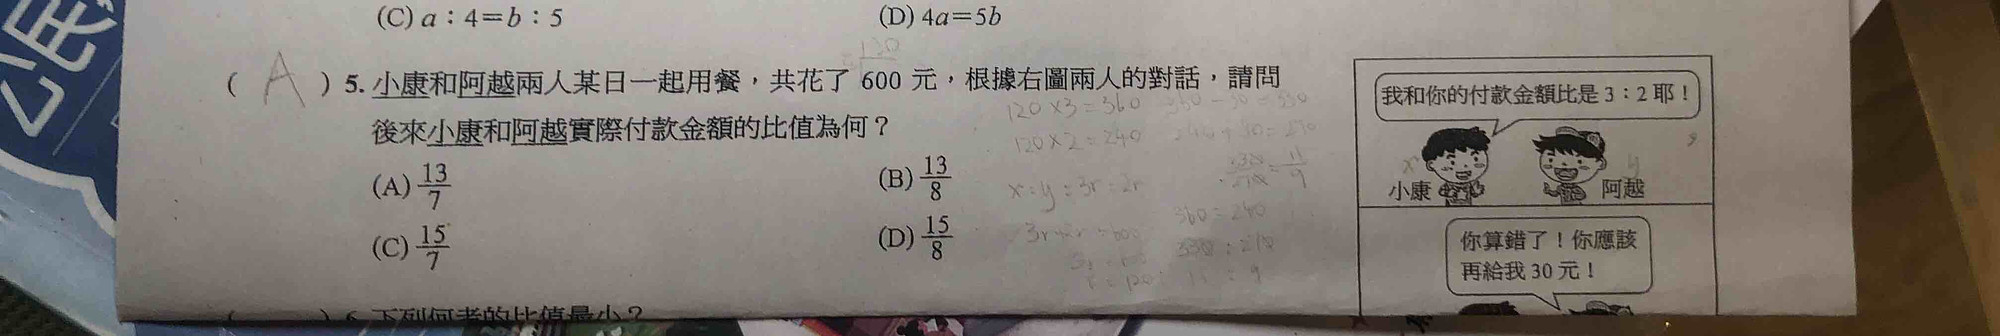 (C) a：4＝b：5
(D) 4a＝5b
( A ) 5. 小康和阿越兩人某日一起用餐，共花了 600 元，根據右圖兩人的對話，請問
後來小康和阿越實際付款金額的比值為何？
(A) 13/7
(B) 13/8
(C) 15/7
(D) 15/8
120×3=360
120×2=240
x:y=3r:2r
360:240
r=120
我和你的付款金額比是 3：2 耶！
x
y
小康
阿越
你算錯了！你應該
再給我 30 元！
( ) 6. 下列何者的比值最小？